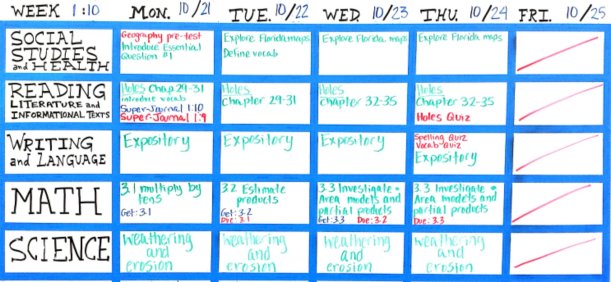 WEEK 1:10 MON. 10/21 TUE. 10/22 WED. 10/23 THU. 10/24 FRI. 10/25
SOCIAL
STUDIES
and HEALTH
Geography pre-test
Introduce Essential
Question #1
Explore Florida maps
Define vocab
Explore Florida maps
Explore Florida maps
READING
LITERATURE and
INFORMATIONAL TEXTS
Holes Chap. 29-31
introduce vocab
Super-Journal 1:10
Super-Journal 1:9
Holes
Chapter 29-31
Holes
chapter 32-35
Holes
Chapter 32-35
Holes Quiz
WRITING
and LANGUAGE
Expository
Expository
Expository
Spelling Quiz
Vocab-Quiz
Expository
MATH
3.1 multiply by
tens
Get: 3.1
3.2 Estimate
products
Get: 3.2
Due: 3.1
3.3 Investigate •
Area models and
partial products
Get: 3.3 Due: 3.2
3.3 Investigate •
Area models and
partial products
Due: 3.3
SCIENCE
weathering
and
erosion
weathering
and
erosion
weathering
and
erosion
weathering
and
erosion